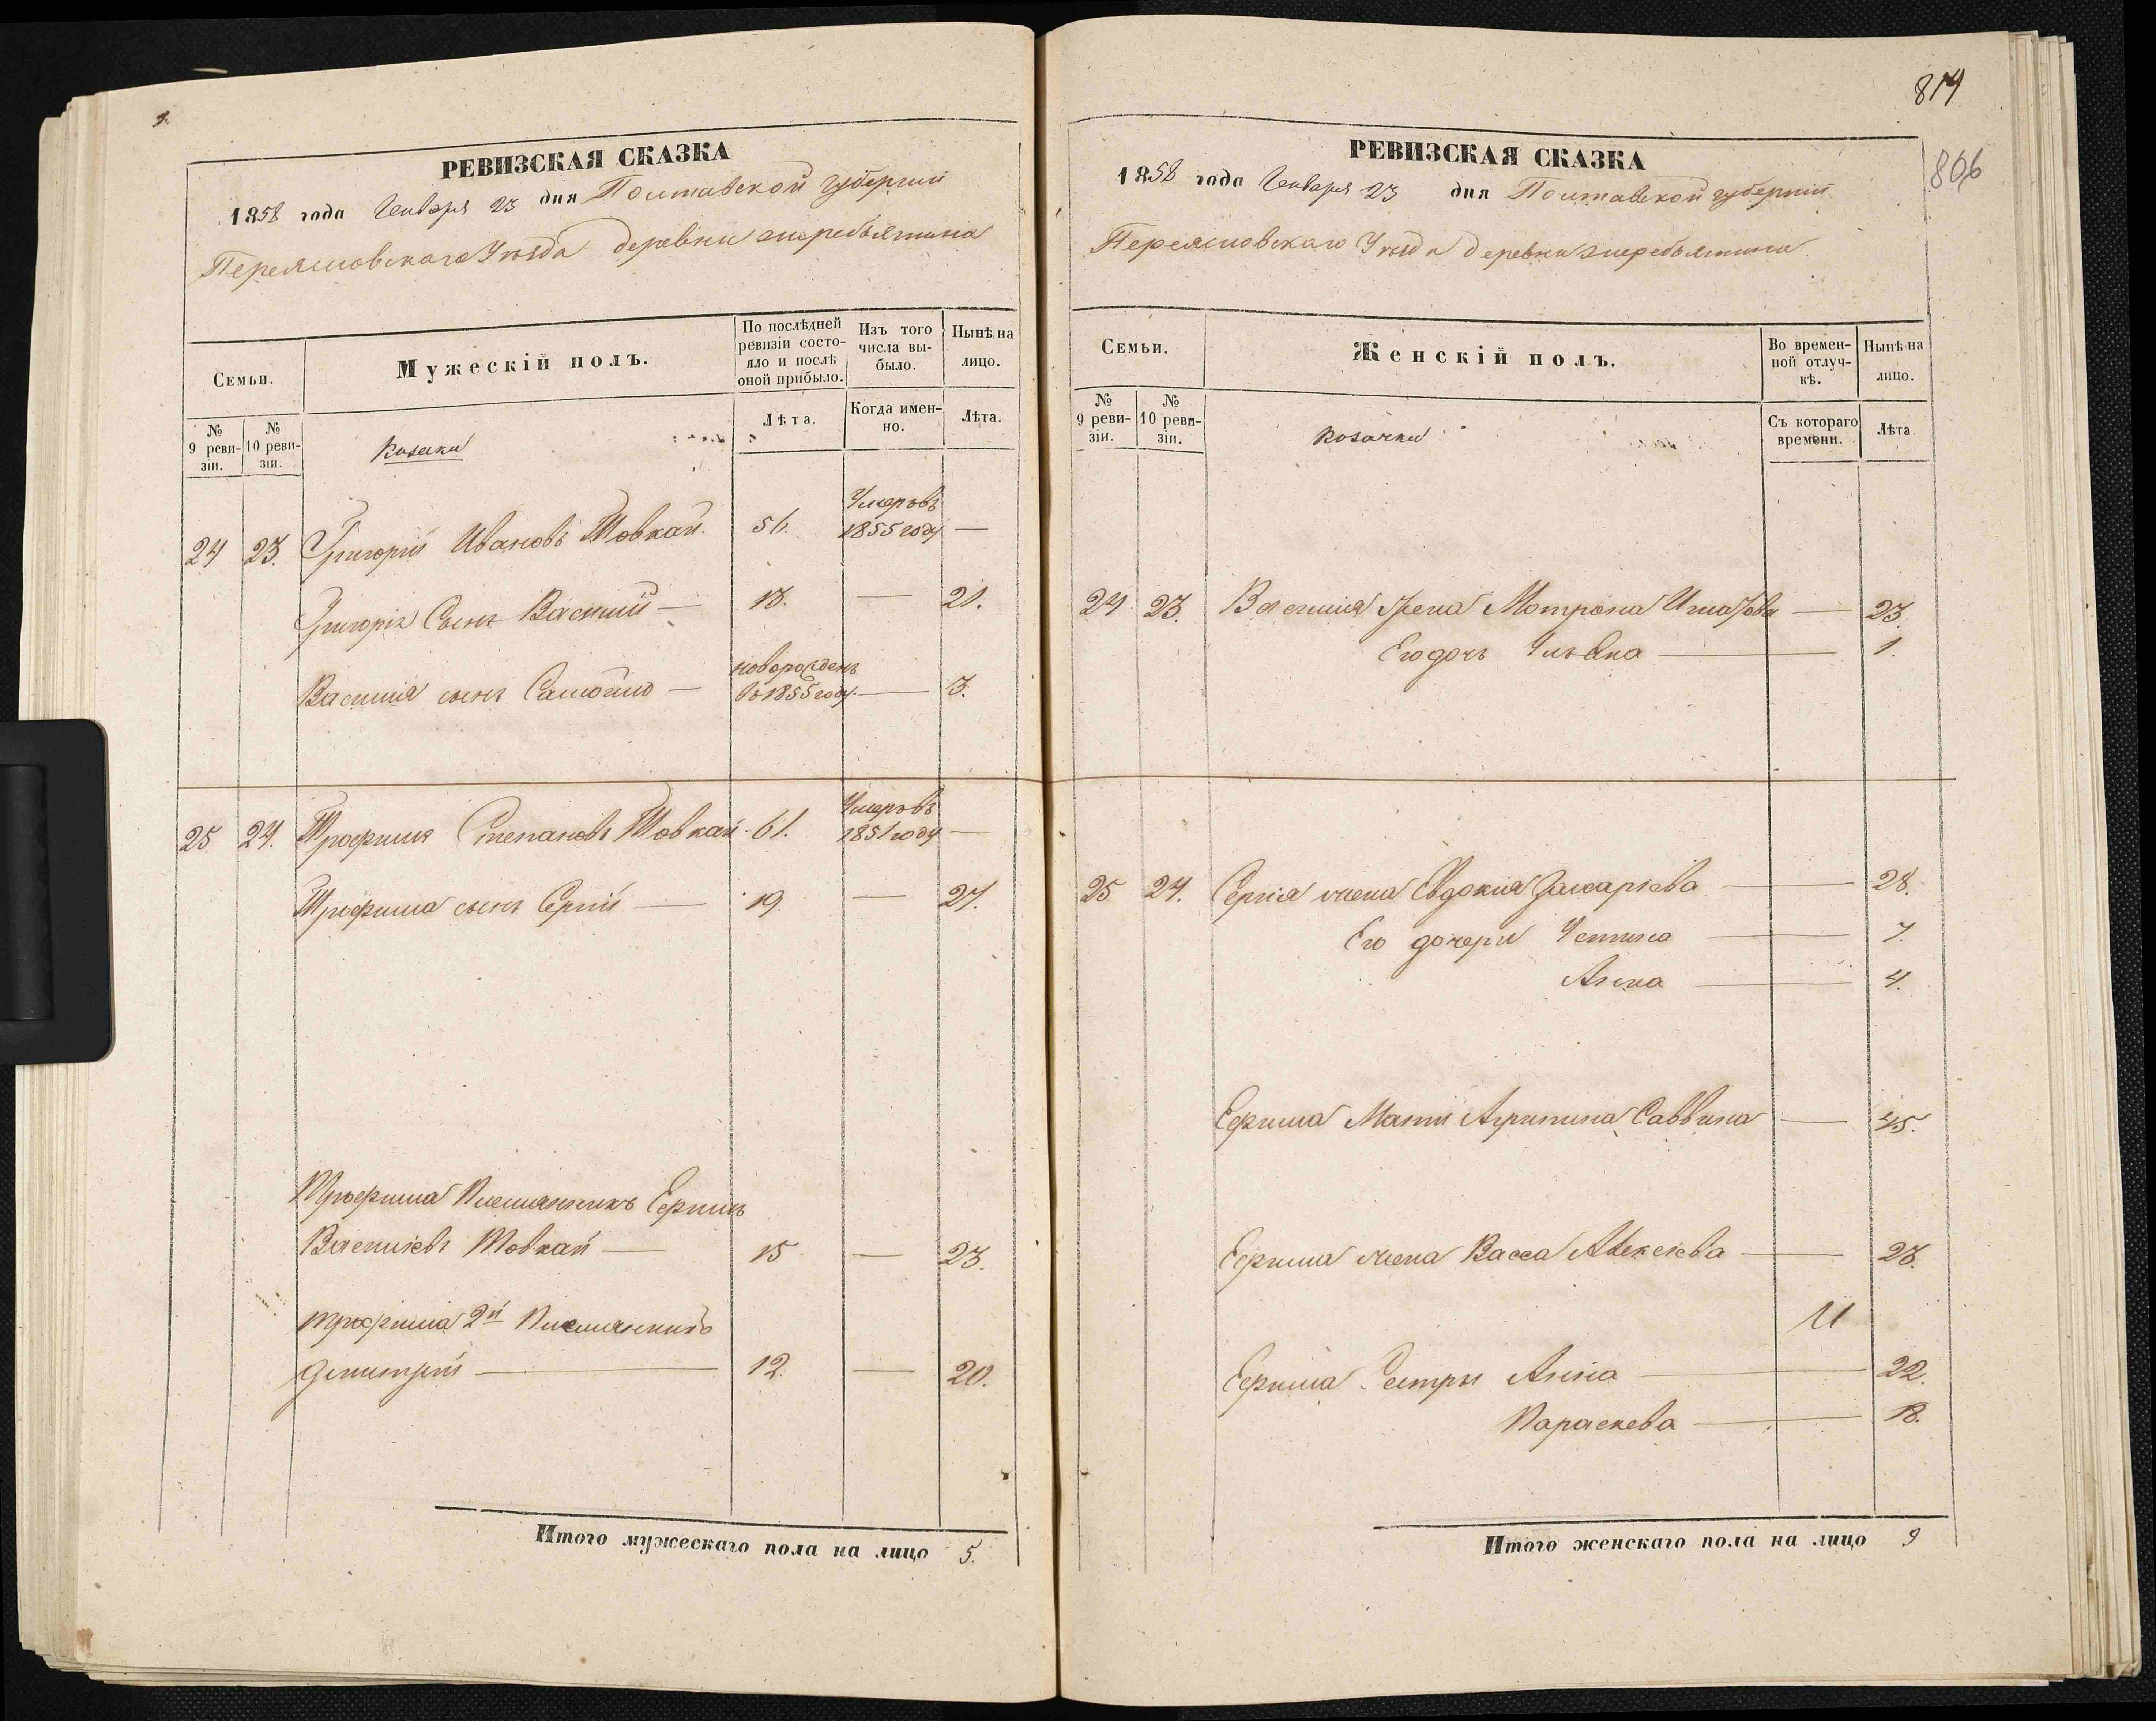 РЕВИЗСКАЯ СКАЗКА
1858 года Генваря 23 дня Полтавской губернии
Переясловскаго Уезда деревни
Семьи.
Мужескій полъ.
По послѣдней ревизіи состояло и послѣ оной прибыло.
Изъ того числа выбыло.
Нынѣ на лицо.
№ 9 ревизіи.
№ 10 ревизіи.
Козаки
Лѣта.
Когда именно.
Лѣта.
24 23. Григорий Ивановъ Товкай. 56. Умеръ въ 1855 году —
Григорія Сынъ Василий — 13. — 21.
Василия сынъ Самойло — новорожденъ въ 1855 году. — 3.
25 24. Трофимъ Степановъ Товкай. 61. Умеръ въ 1851 году —
Трофима сынъ Сергий — 19. — 27.
Трофима Племянникъ Ефимъ
Василіевъ Товкай — 15 — 23.
Трофима 2й Племянникъ
Димитрий — 12. — 20.
Итого мужескаго пола на лицо 5.
814
806
РЕВИЗСКАЯ СКАЗКА
1858 года Генваря 23 дня Полтавской губернии
Переясловскаго Уезда деревни
Семьи.
Женскій полъ.
Во временной отлучкѣ.
Нынѣ на лицо.
№ 9 ревизіи.
№ 10 ревизіи.
Козачки
Съ котораго времени.
Лѣта.
24 23. Василия жена Мотрона — 23.
Его дочь — 1.
25 24. Сергія жена Евдокия Захаріева — 28.
Его дочери Устина — 7.
Анна — 4.
Ефима Мати Агрипина Саввина — 45.
Ефима жена Васса Алексіева — 23.
Ефима Сестры Анна — 22.
Параскева — 18.
Итого женскаго пола на лицо 9